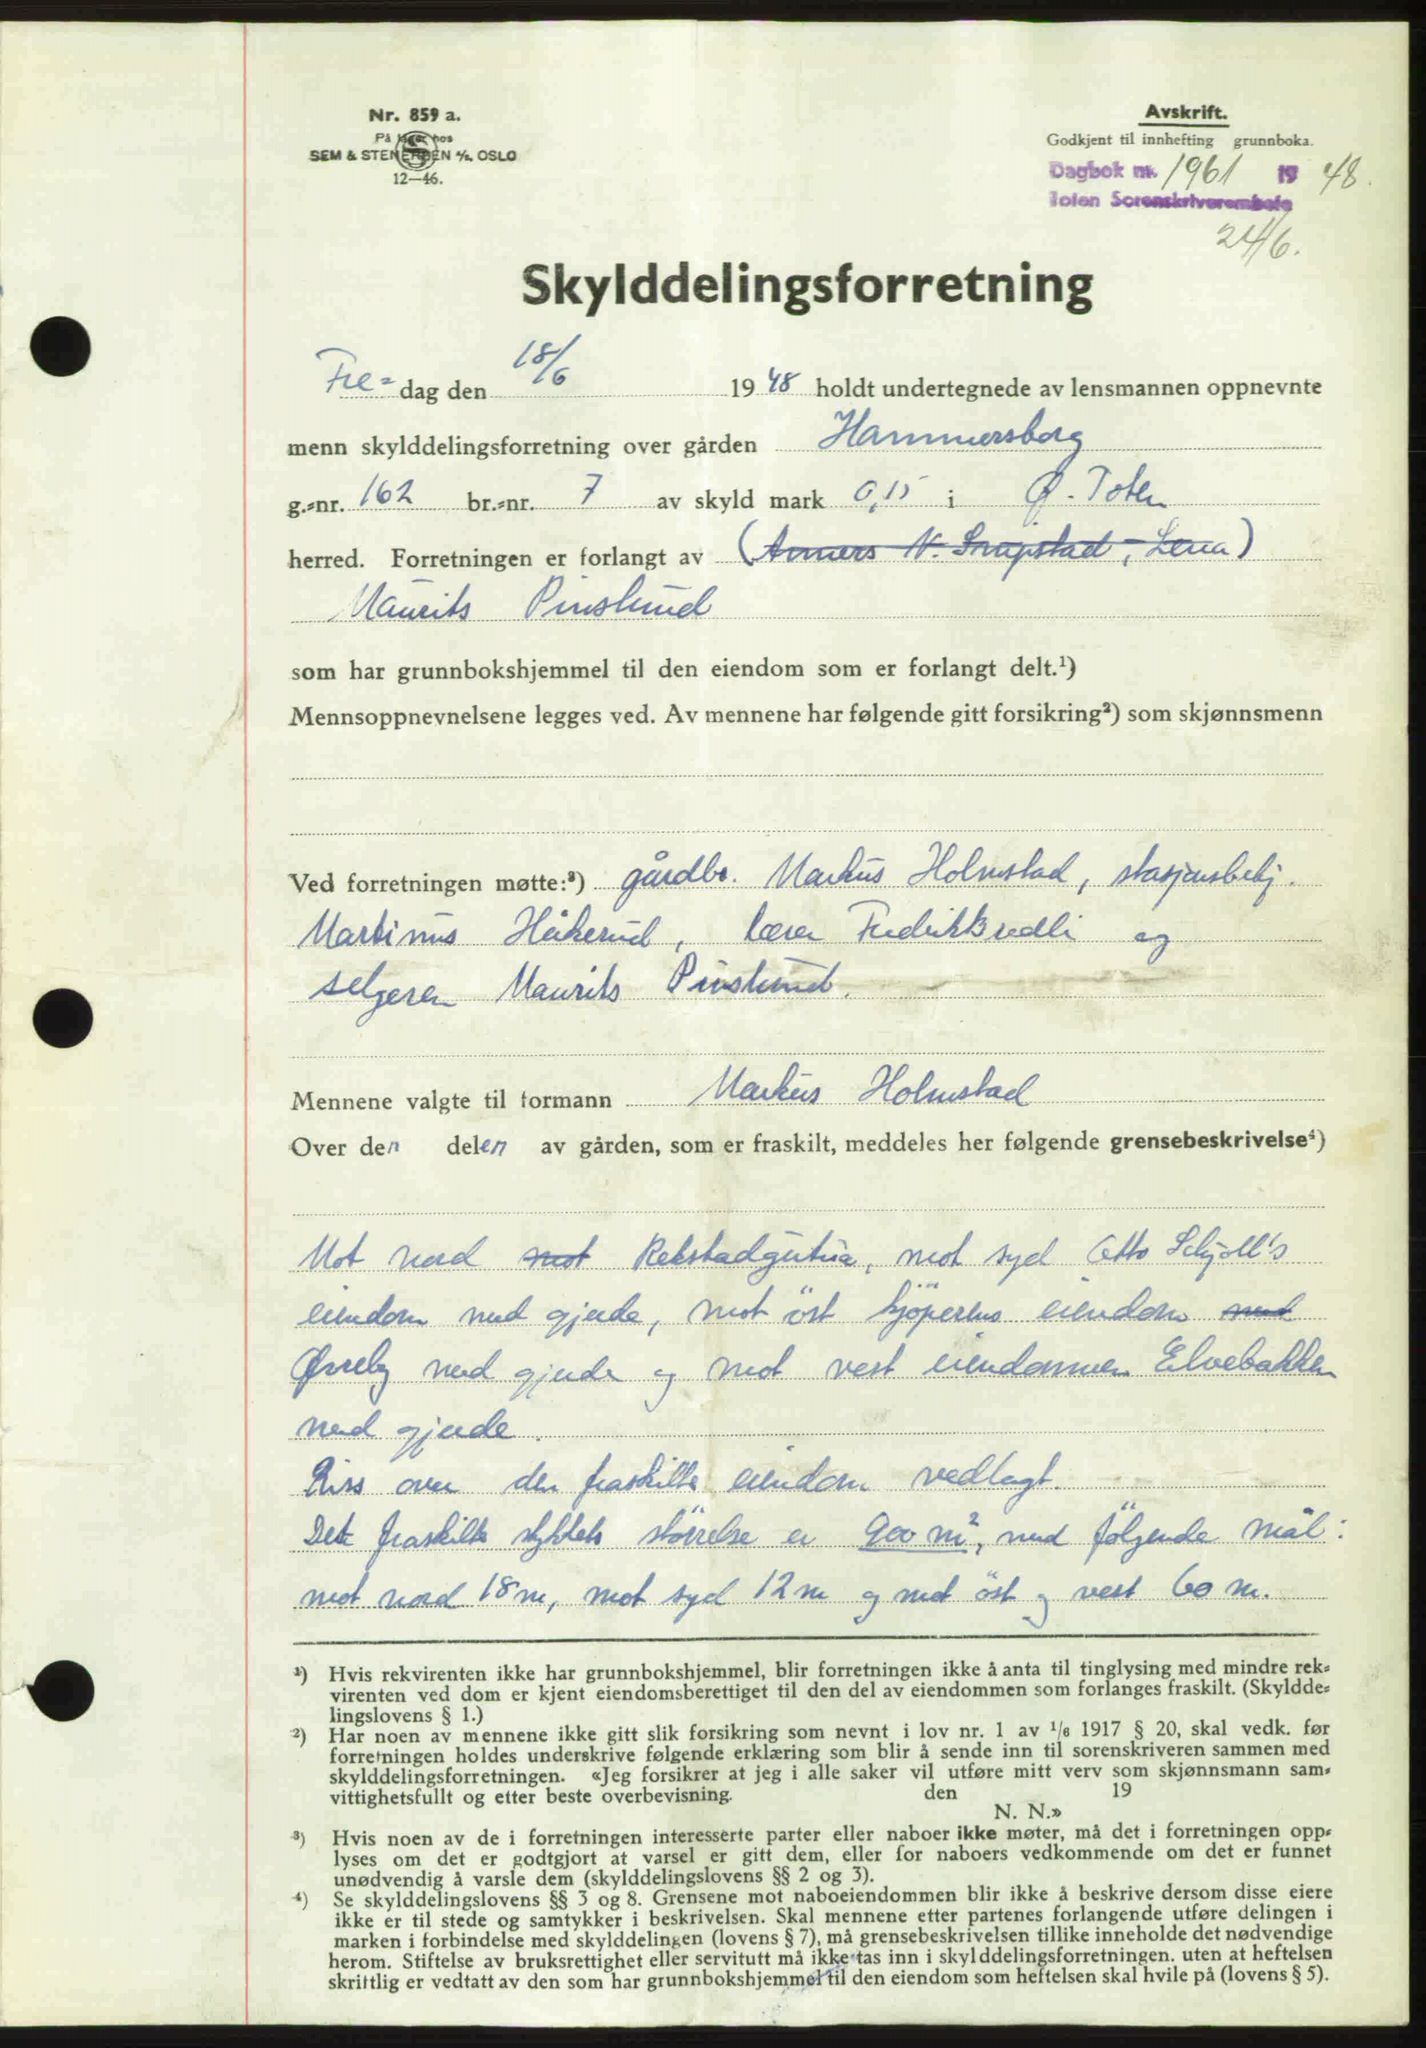 Nr. 859 a.
På lager hos
SEM & STENERSEN A/S. OSLO
12—46.
Avskrift.
Godkjent til innhefting grunnboka.
Dagbok nr. 1961 19 48.
Toten Sorenskriverembete
24/6.
Skylddelingsforretning
Fre- dag den 18/6 19 48 holdt undertegnede av lensmannen oppnevnte
menn skylddelingsforretning over gården Hammersborg
g.-nr. 162 br.-nr. 7 av skyld mark 0,15 i Ø. Toten
herred. Forretningen er forlangt av (Anners N. , Lena)
Maurits Pinslund
som har grunnbokshjemmel til den eiendom som er forlangt delt.¹)
Mennsoppnevnelsene legges ved. Av mennene har følgende gitt forsikring²) som skjønnsmenn
Ved forretningen møtte:³) gårdbr. Markus Holmstad, stasjonsbetj.
Martinus Håkerud, lærer Fredrik Bredli og
selgeren Maurits Pinslund.
Mennene valgte til formann Markus Holmstad
Over den delen av gården, som er fraskilt, meddeles her følgende grensebeskrivelse⁴)
Mot nord mot Rekstadgutua, mot syd Otto Schjøll's
eiendom med gjerde, mot öst kjöperens eiendom med
Øvreby med gjerde og mot vest eiendommen Elvebakken
med gjerde.
Riss over den fraskilte eiendom vedlagt.
Det fraskilte stykkets störrelse er 900 m², med fölgende mål:
mot nord 18 m, mot syd 12 m og mot öst og vest 60 m.
¹) Hvis rekvirenten ikke har grunnbokshjemmel, blir forretningen ikke å anta til tinglysing med mindre rek-
virenten ved dom er kjent eiendomsberettiget til den del av eiendommen som forlanges fraskilt. (Skyldde-
lingslovens § 1.)
²) Har noen av mennene ikke gitt slik forsikring som nevnt i lov nr. 1 av ¹/6 1917 § 20, skal vedk. før
forretningen holdes underskrive følgende erklæring som blir å sende inn til sorenskriveren sammen med
skylddelingsforretningen. «Jeg forsikrer at jeg i alle saker vil utføre mitt verv som skjønnsmann sam-
vittighetsfullt og etter beste overbevisning. den 19
N. N.»
³) Hvis noen av de i forretningen interesserte parter eller naboer ikke møter, må det i forretningen opp-
lyses om det er godtgjort at varsel er gitt dem, eller for naboers vedkommende om det er funnet
unødvendig å varsle dem (skylddelingslovens §§ 2 og 3).
⁴) Se skylddelingslovens §§ 3 og 8. Grensene mot naboeiendommen blir ikke å beskrive dersom disse eiere
ikke er til stede og samtykker i beskrivelsen. Skal mennene etter partenes forlangende utføre delingen i
marken i forbindelse med skylddelingen (lovens § 7), må grensebeskrivelsen tillike inneholde det nødvendige
herom. Stiftelse av bruksrettighet eller servitutt må ikke tas inn i skylddelingsforretningen. uten at heftelsen
skriftlig er vedtatt av den som har grunnbokshjemmel til den eiendom som heftelsen skal hvile på (lovens § 5).